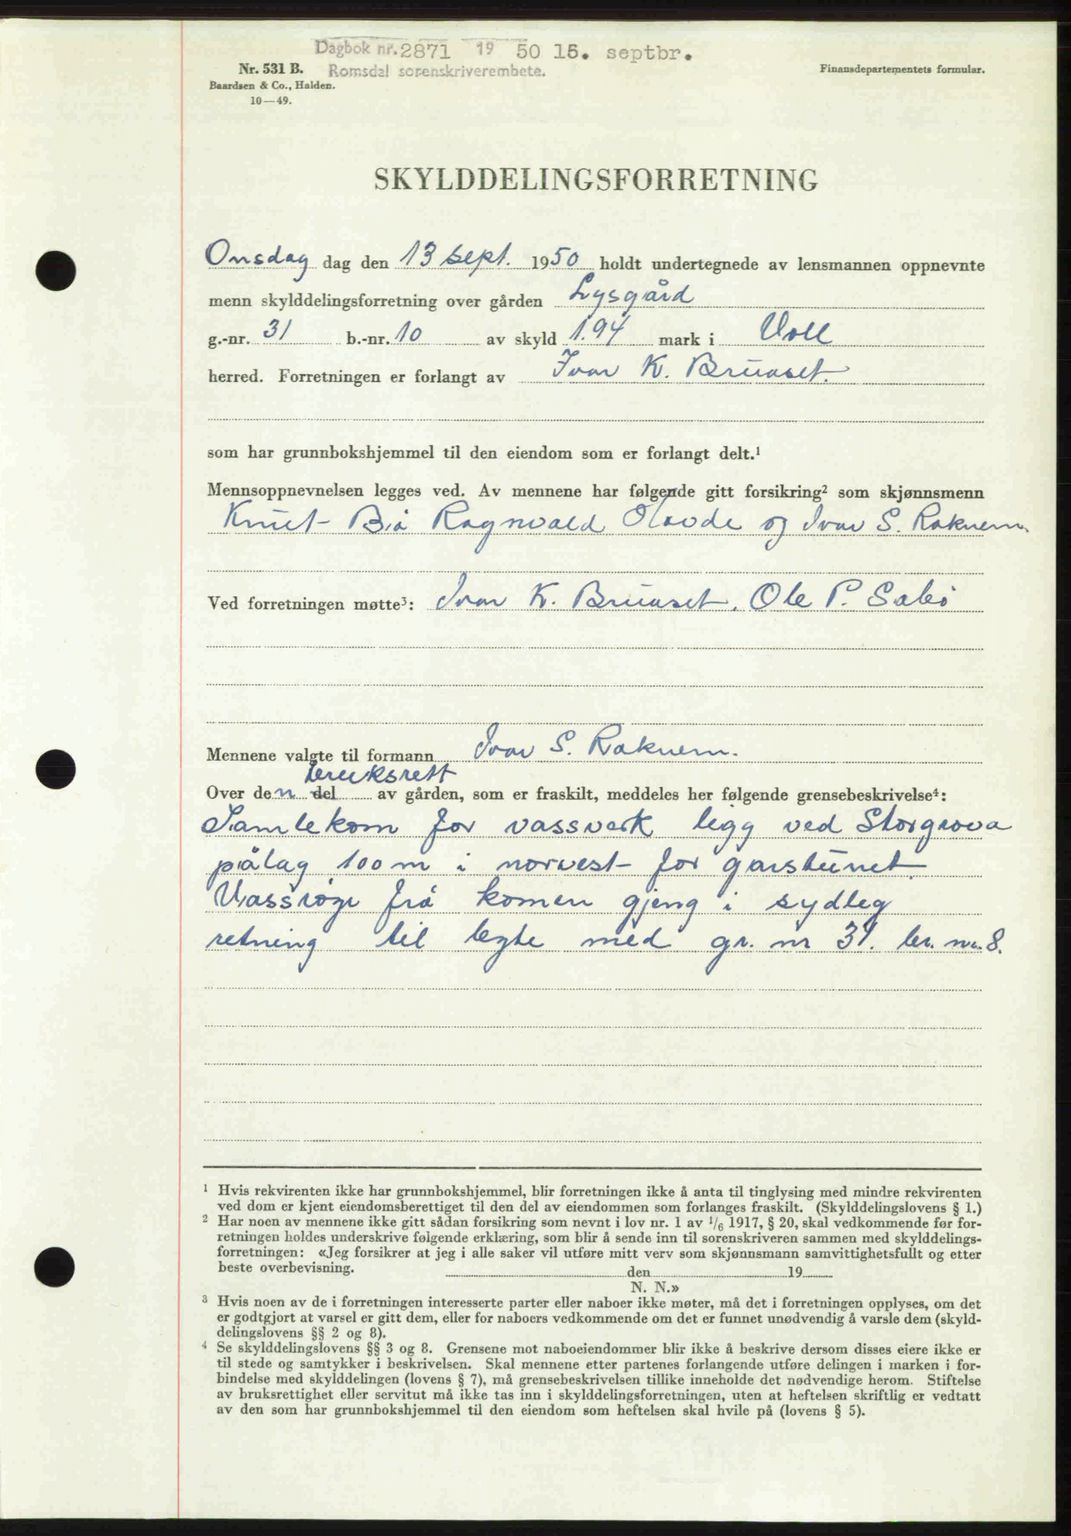 Dagbok nr. 2871 1950 15. septbr.
Romsdal sorenskriverembete.
Nr. 531 B.
Baardsen & Co., Halden.
10—49.
Finansdepartementets formular.
SKYLDDELINGSFORRETNING
Onsdag dag den 13 sept. 1950 holdt undertegnede av lensmannen oppnevnte
menn skylddelingsforretning over gården Lysgård
g.-nr. 31 b.-nr. 10 av skyld 1.94 mark i Voll
herred. Forretningen er forlangt av Ivar K. Bruaset.
som har grunnbokshjemmel til den eiendom som er forlangt delt.¹
Mennsoppnevnelsen legges ved. Av mennene har følgende gitt forsikring² som skjønnsmenn
Knut Bø Ragnvald Olavde og Ivar S. Raknem
Ved forretningen møtte³: Ivar K. Bruaset, Ole P. Sabø
Mennene valgte til formann Ivar S. Raknem.
bruksrett
Over den del av gården, som er fraskilt, meddeles her følgende grensebeskrivelse⁴:
Samlekom for vassverk ligg ved Storgrova
pålag 100 m i norvest for garstunet.
Vassrøyr frå komen gjeng i sydleg
retning til byte med gr. nr 31. br. nr. 8.
¹ Hvis rekvirenten ikke har grunnbokshjemmel, blir forretningen ikke å anta til tinglysing med mindre rekvirenten
ved dom er kjent eiendomsberettiget til den del av eiendommen som forlanges fraskilt. (Skylddelingslovens § 1.)
² Har noen av mennene ikke gitt sådan forsikring som nevnt i lov nr. 1 av 1/6 1917, § 20, skal vedkommende før for-
retningen holdes underskrive følgende erklæring, som blir å sende inn til sorenskriveren sammen med skylddelings-
forretningen: «Jeg forsikrer at jeg i alle saker vil utføre mitt verv som skjønnsmann samvittighetsfullt og etter
beste overbevisning. den 19
N. N.»
³ Hvis noen av de i forretningen interesserte parter eller naboer ikke møter, må det i forretningen opplyses, om det
er godtgjort at varsel er gitt dem, eller for naboers vedkommende om det er funnet unødvendig å varsle dem (skyld-
delingslovens §§ 2 og 8).
⁴ Se skylddelingslovens §§ 3 og 8. Grensene mot naboeiendommer blir ikke å beskrive dersom disses eiere ikke er
til stede og samtykker i beskrivelsen. Skal mennene etter partenes forlangende utføre delingen i marken i for-
bindelse med skylddelingen (lovens § 7), må grensebeskrivelsen tillike inneholde det nødvendige herom. Stiftelse
av bruksrettighet eller servitut må ikke tas inn i skylddelingsforretningen, uten at heftelsen skriftlig er vedtatt
av den som har grunnbokshjemmel til den eiendom som heftelsen skal hvile på (lovens § 5).